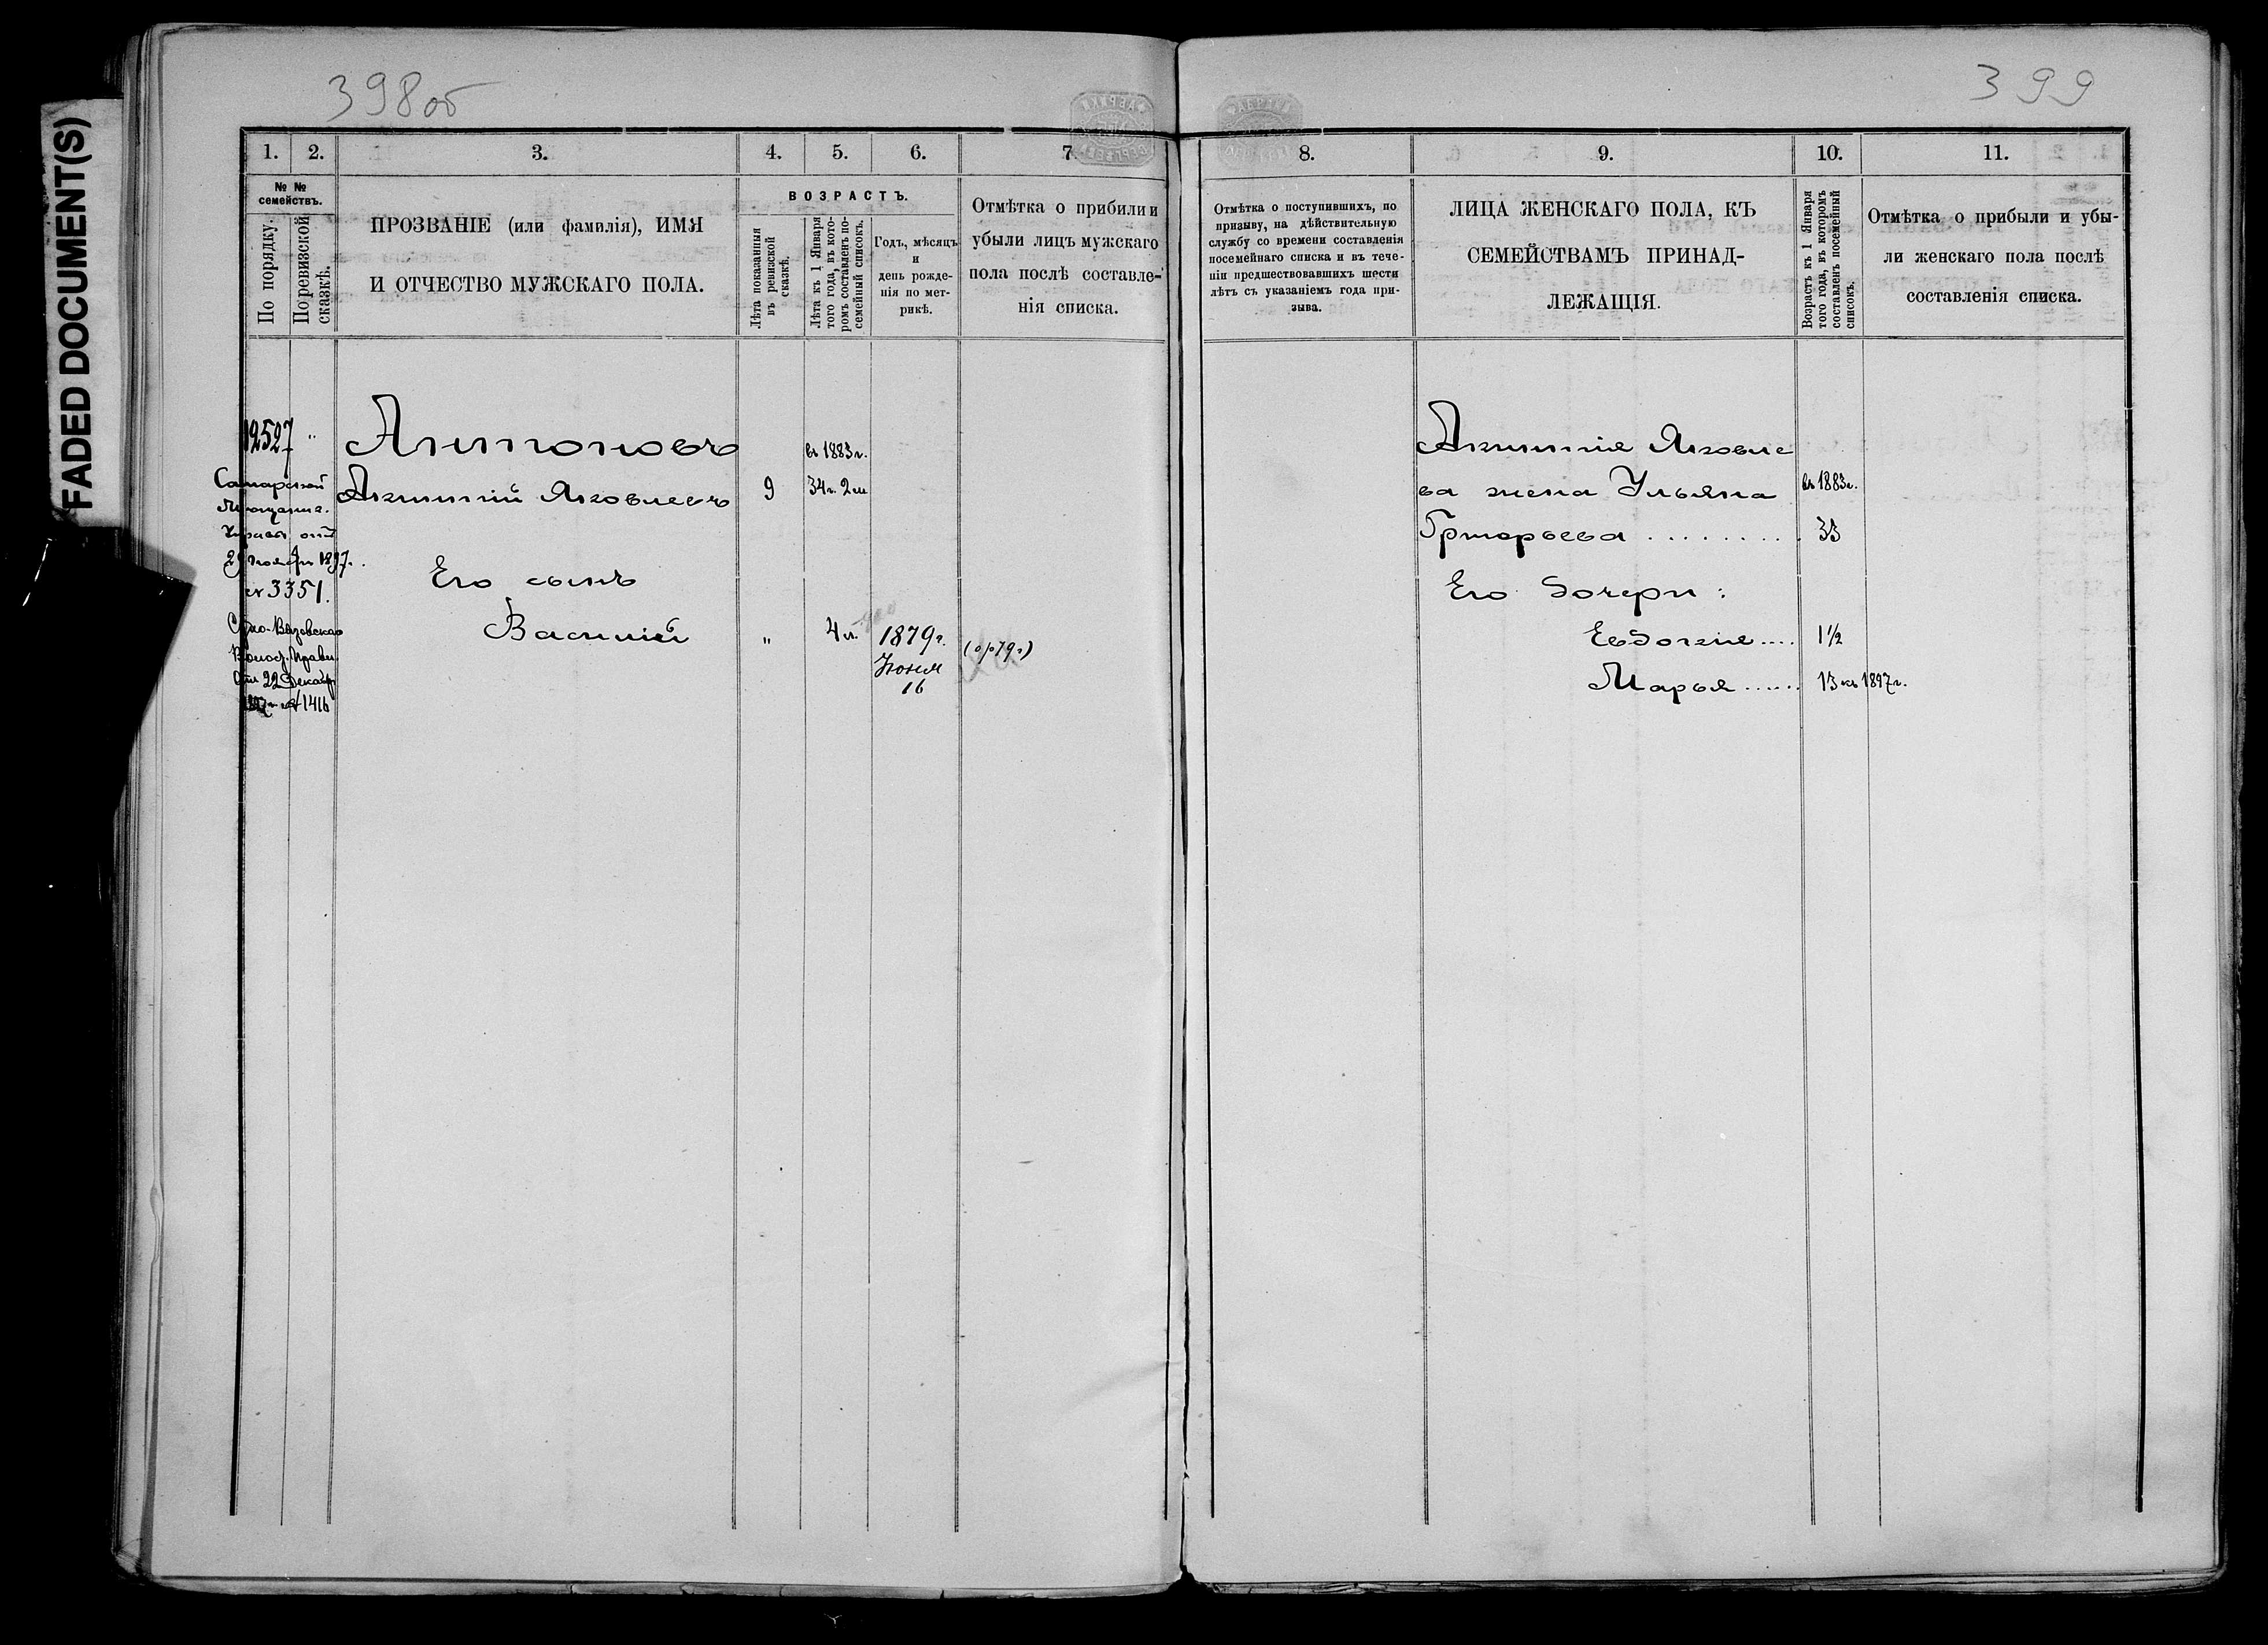 FADED DOCUMENT(S)
398об
1. 2. 3. 4. 5. 6. 7.
№ №
семействъ.
По порядку.
По ревизской
сказкѣ.
ПРОЗВАНІЕ (или фамилія), ИМЯ
И ОТЧЕСТВО МУЖСКАГО ПОЛА.
ВОЗРАСТЪ.
Лѣта показанныя
въ ревизской
сказкѣ.
Лѣта къ 1 Января
того года, въ кото-
ромъ составленъ по-
семейный списокъ.
Годъ, мѣсяцъ
и
день рожде-
нія по мет-
рикѣ.
Отмѣтка о прибили и
убыли лицъ мужскаго
пола послѣ составле-
нія списка.
12527 "
Самарской
Мѣщанск.
Управы отъ
1897г.
№ 3351.
Волост. Правл.
22 Декабр
1897г. № 1416
Антоновъ
Акинтій Яковлевъ
9
въ 1883 г.
34 г. 2 м
Его сынъ
Василій
"
4 л.
1879 г.
Іюня
16
399
8. 9. 10. 11.
Отмѣтка о поступившихъ, по
призыву, на дѣйствительную
службу со времени составленія
посемейнаго списка и въ тече-
ніи предшествовавшихъ шести
лѣтъ съ указаніемъ года при-
зыва.
ЛИЦА ЖЕНСКАГО ПОЛА, КЪ
СЕМЕЙСТВАМЪ ПРИНАД-
ЛЕЖАЩІЯ.
Возрастъ къ 1 Января
того года, въ которомъ
составленъ посемейный
списокъ.
Отмѣтка о прибыли и убы-
ли женскаго пола послѣ
составленія списка.
Акинтія Яковле
ва жена Ульяна въ 1883 г.
Григорьева . . . . . . . . . 33
Его дочери:
Евдокія .... 1½
Марья ...... 13 къ 1897 г.